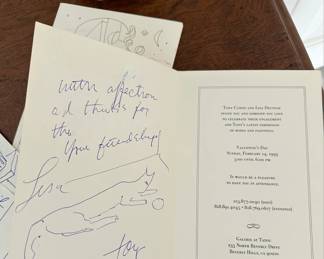 with affection
and thanks for
the
your friendship!
Lisa
Tony Curtis and Lisa Deutsch
invite you and someone you love
to celebrate their engagement
and Tony's latest exhibition
of works and paintings.
Valentine's Day
Sunday, February 14, 1993
3:00 until 6:00 pm
It would be a pleasure
to have you in attendance.
Galerie at Tatou
233 North Beverly Drive
Beverly Hills, CA 90210